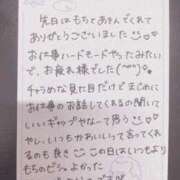 先日はもちてあそんでくれて
ありがとうございました
お仕事ハードモードやったみたい
で、お疲れ様でした(^^)。
ちゃらめな見た目だけど まじめに
お仕事のお話してくれるの聞いて
いいギャプやなーて思う
やし、いつもかわいいって言ってくれ
るのも良き この日はいつもより
もちのビショよかった